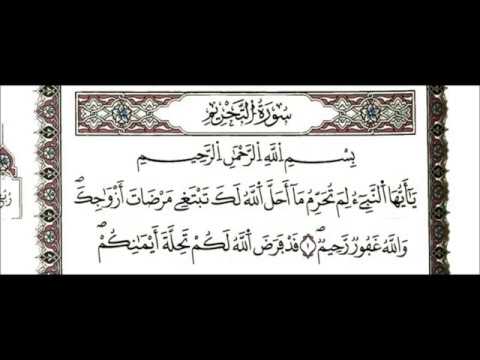 سُورَةُ التَّحْرِيمِ
بِسْمِ اِللَّهِ اِلرَّحْمَٰنِ اِلرَّحِيمِ
يَٰأَيُّهَا اَلنَّبِيٓءُ لِمَ تُحَرِّمُ مَآ أَحَلَّ اَللَّهُ لَكَ تَبْتَغِي مَرْضَاتَ أَزْوَٰجِكَۖ
وَاللَّهُ غَفُورٞ رَّحِيمٞۖ ١ قَدْ فَرَضَ اَللَّهُ لَكُمْ تَحِلَّةَ أَيْمَٰنِكُمْۖ